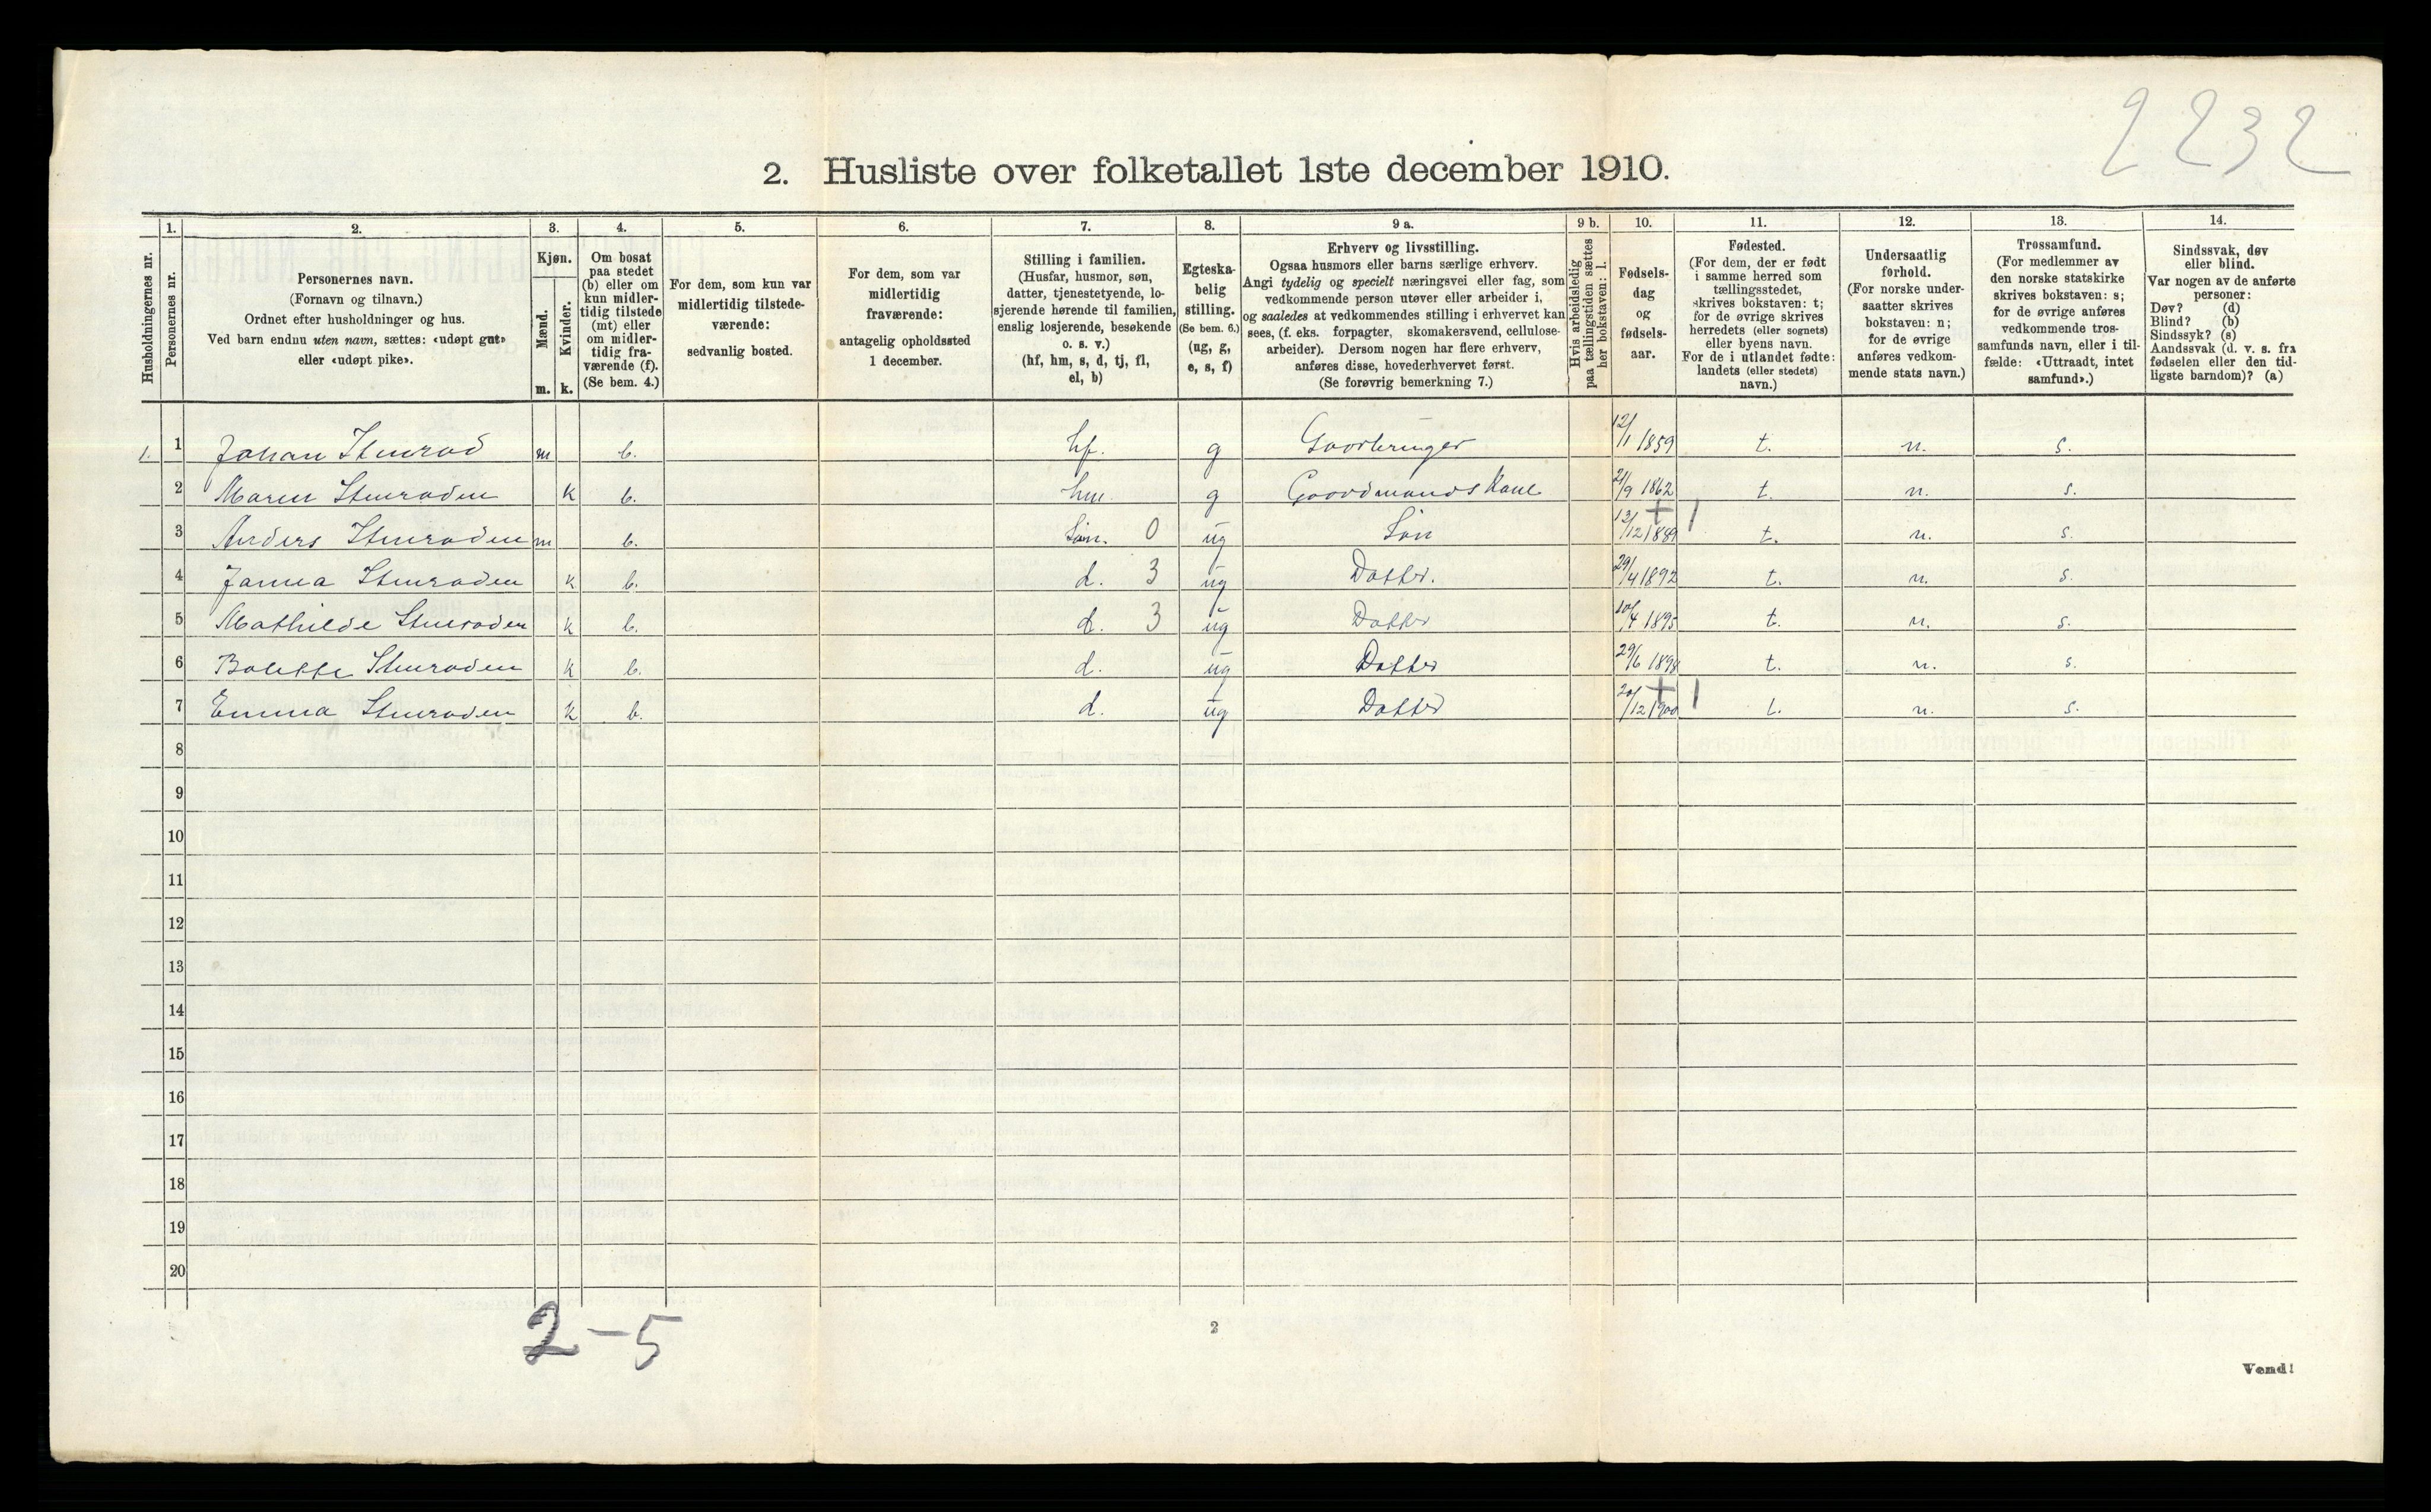 2232
2. Husliste over folketallet 1ste december 1910.
Husholdningernes nr.
1.
Personernes nr.
2.
Personernes navn.
(Fornavn og tilnavn.)
Ordnet efter husholdninger og hus.
Ved barn endnu uten navn, sættes: «udøpt gut»
eller «udøpt pike».
3.
Kjøn.
Mænd.
Kvinder.
m. k.
4.
Om bosat
paa stedet
(b) eller om
kun midler-
tidig tilstede
(mt) eller
om midler-
tidig fra-
værende (f).
(Se bem. 4.)
5.
For dem, som kun var
midlertidig tilstede-
værende:
sedvanlig bosted.
6.
For dem, som var
midlertidig
fraværende:
antagelig opholdssted
1 december.
7.
Stilling i familien.
(Husfar, husmor, søn,
datter, tjenestetyende, lo-
sjerende hørende til familien,
enslig losjerende, besøkende
o. s. v.)
(hf, hm, s, d, tj, fl,
el, b)
8.
Egteska-
belig
stilling.
(Se bem. 6.)
(ug, g,
e, s, f)
9 a.
Erhverv og livsstilling.
Ogsaa husmors eller barns særlige erhverv.
Angi tydelig og specielt næringsvei eller fag, som
vedkommende person utøver eller arbeider i,
og saaledes at vedkommendes stilling i erhvervet kan
sees, (f. eks. forpagter, skomakersvend, cellulose-
arbeider). Dersom nogen har flere erhverv,
anføres disse, hovederhvervet først.
(Se forøvrig bemerkning 7.)
9 b.
Hvis arbeidsledig
paa tællingstiden sættes
her bokstaven: l.
10.
Fødsels-
dag
og
fødsels-
aar.
11.
Fødested.
(For dem, der er født
i samme herred som
tællingsstedet,
skrives bokstaven: t;
for de øvrige skrives
herredets (eller sognets)
eller byens navn.
For de i utlandet fødte:
landets (eller stedets)
navn.)
12.
Undersaatlig
forhold.
(For norske under-
saatter skrives
bokstaven: n;
for de øvrige
anføres vedkom-
mende stats navn.)
13.
Trossamfund.
(For medlemmer av
den norske statskirke
skrives bokstaven: s;
for de øvrige anføres
vedkommende tros-
samfunds navn, eller i til-
fælde: «Uttraadt, intet
samfund».)
14.
Sindssvak, døv
eller blind.
Var nogen av de anførte
personer:
Døv? (d)
Blind? (b)
Sindssyk? (s)
Aandssvak (d. v. s. fra
fødselen eller den tid-
ligste barndom)? (a)
1. 1 Johan Stenrød m b. hf. g Gaardbruger 12/1 1859 t. n. s.
2 Maren Stenrøden k b. hm. g Gaardmands Kone 21/9 1862 t. n. s.
3 Anders Stenrøden m b. Søn. 0 ug Søn 13/12 1889 + 1 t. n. s.
4 Janna Stenrøden k b. d. 3 ug Datter. 29/4 1892 t. n. s.
5 Mathilde Stenrøden k b. d. 3 ug Datter 10/4 1895 t. n. s.
6 Bolette Stenrøden k b. d. ug Datter 29/6 1898 t. n. s.
7 Emma Stenrøden k b. d. ug Datter 20/12 1900 + 1 t. n. s.
8
9
10
11
12
13
14
15
16
17
18
19
20
2-5
2
Vend!